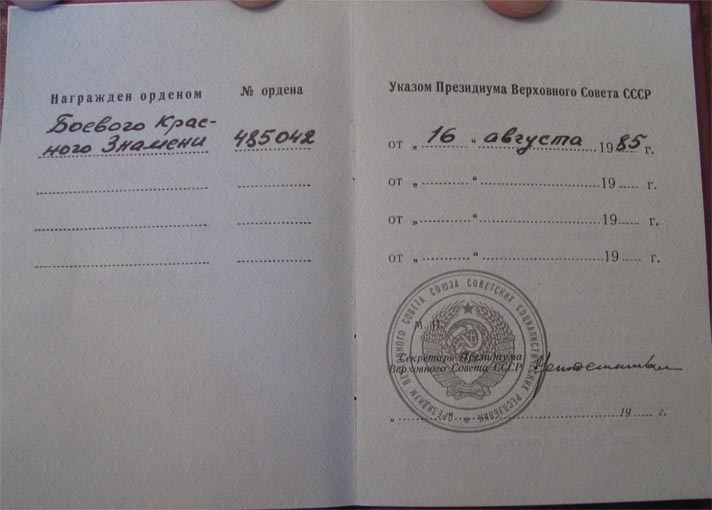 Награжден орденом
№ ордена
Боевого Крас-
ного Знамени
485042
Указом Президиума Верховного Совета СССР
от „ 16 “ августа 1985 г.
от „ “ 19 г.
от „ “ 19 г.
от „ “ 19 г.
ПРЕЗИДИУМ ВЕРХОВНОГО СОВЕТА СОЮЗА СОВЕТСКИХ СОЦИАЛИСТИЧЕСКИХ РЕСПУБЛИК
М. П.
Секретарь Президиума
Верховного Совета СССР
„ “ 19 г.